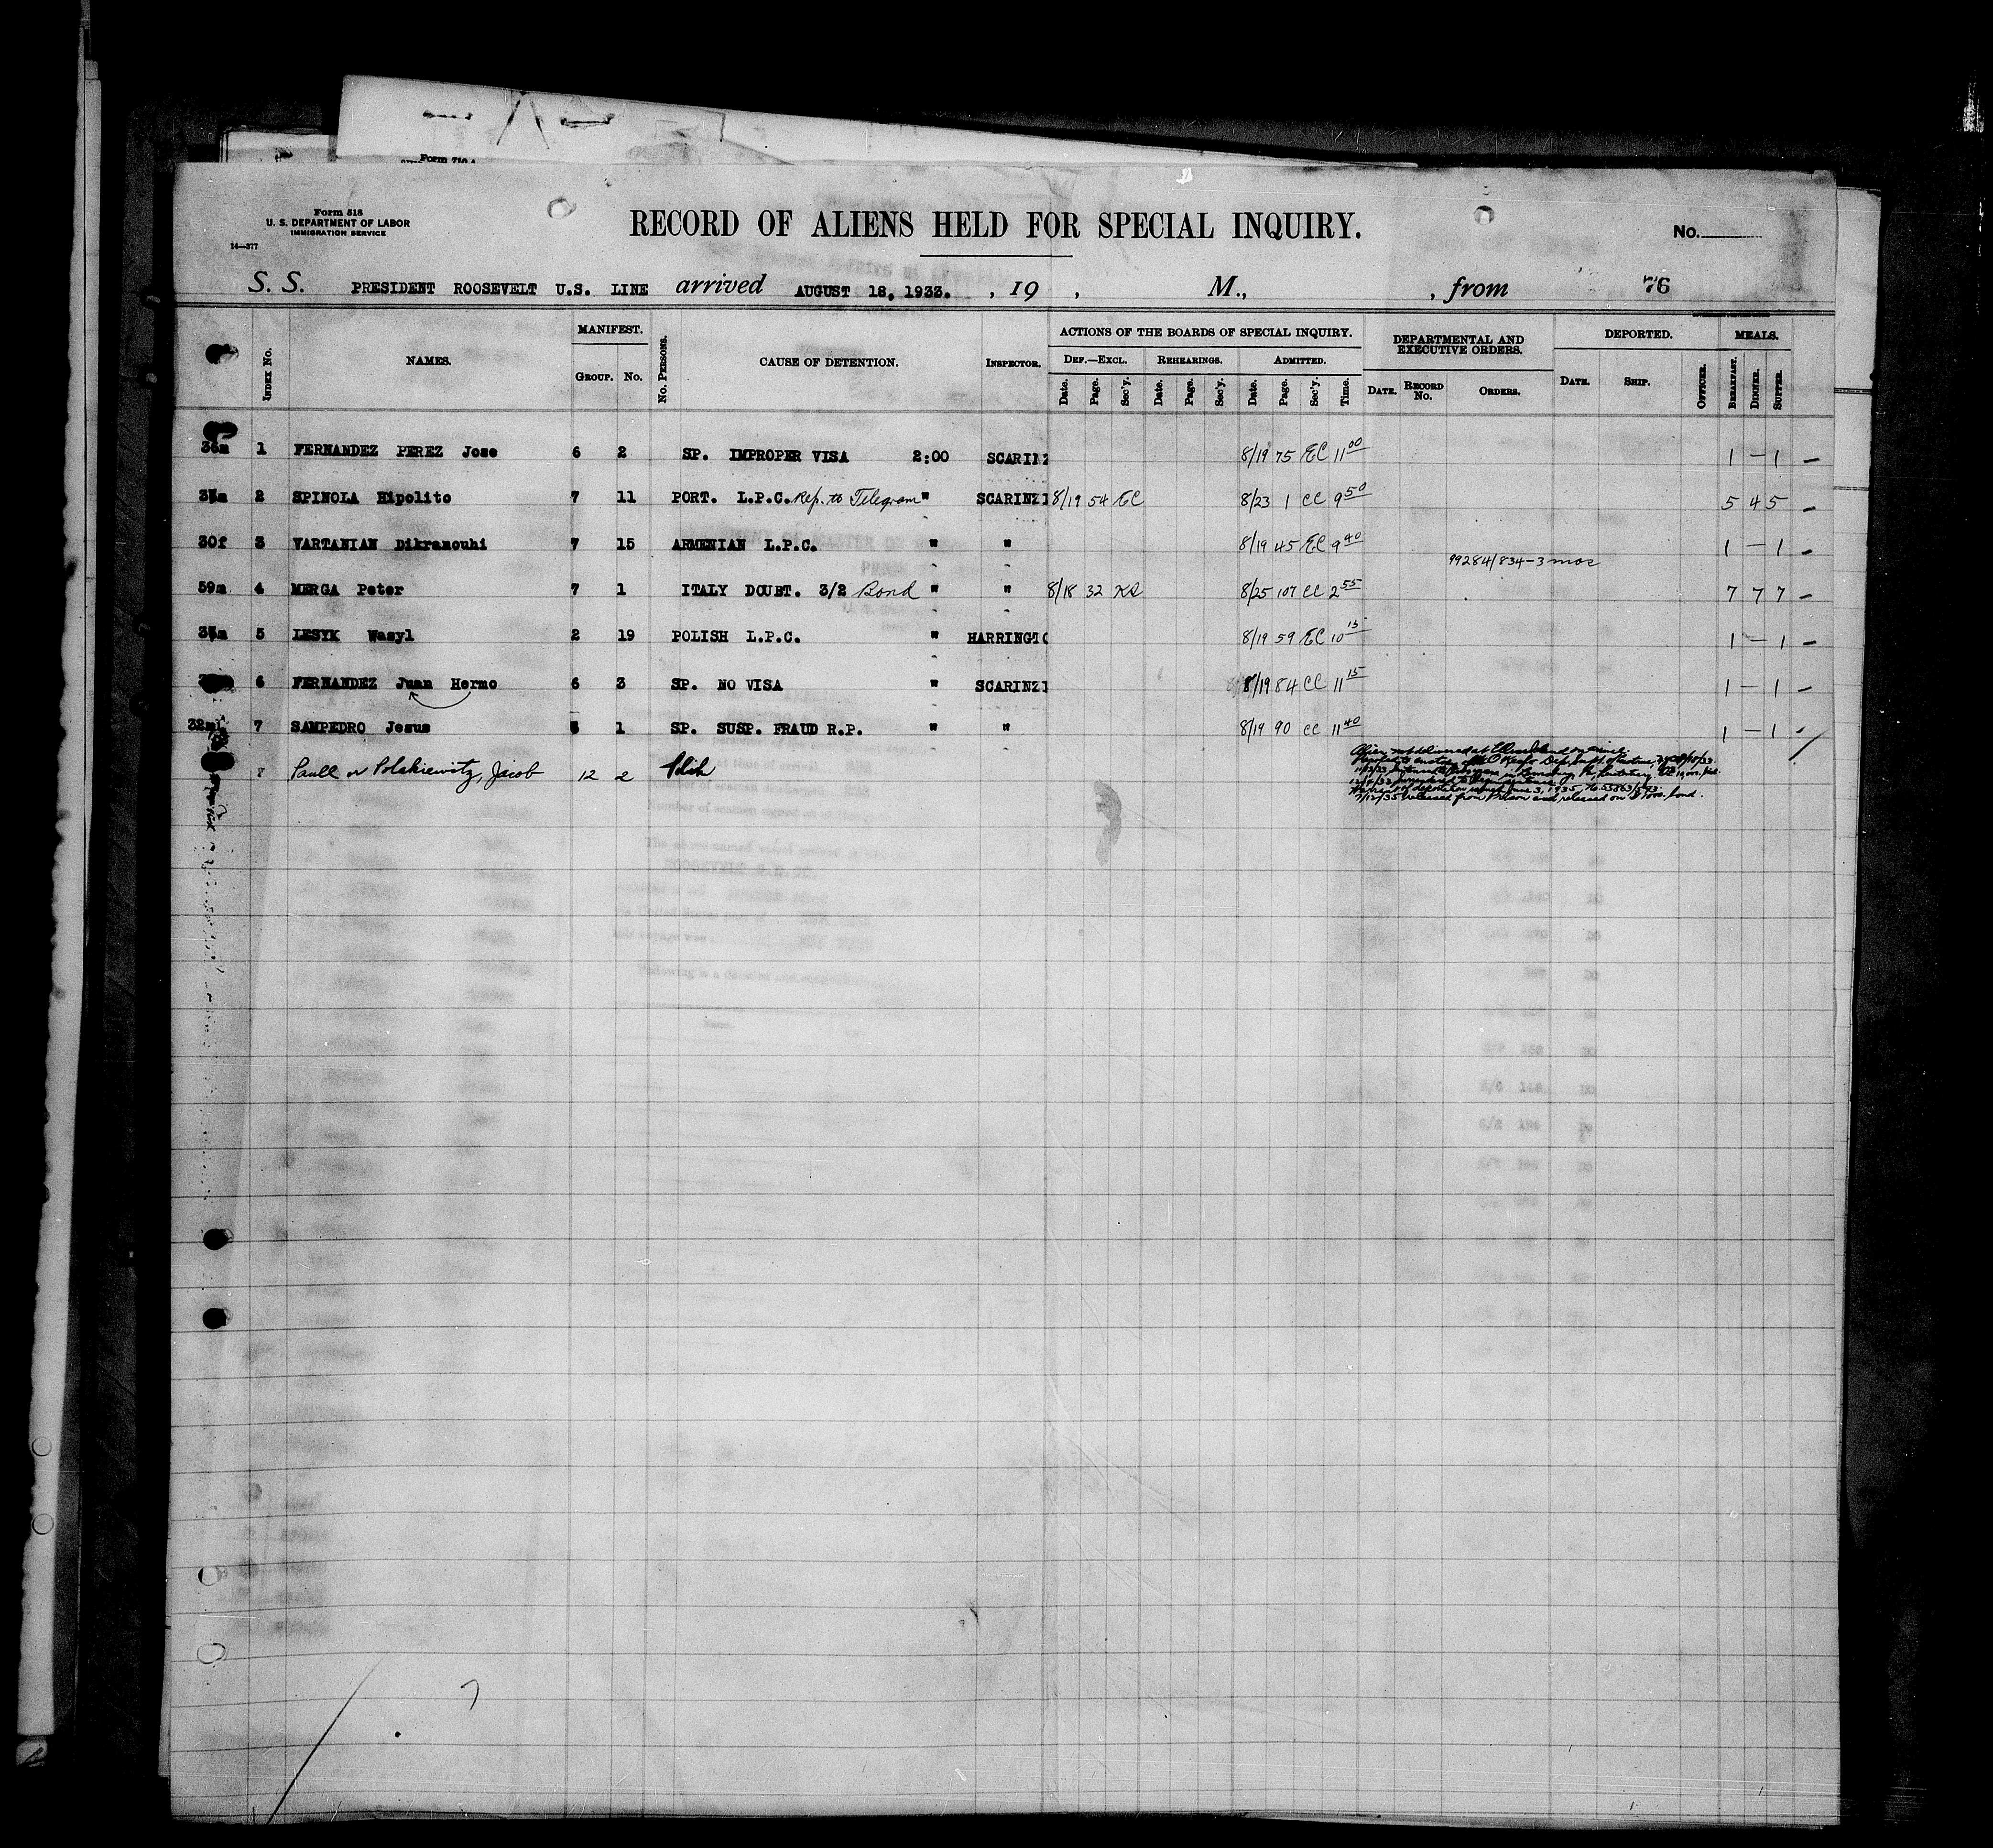 Form 518
U. S. DEPARTMENT OF LABOR
IMMIGRATION SERVICE
14—377
RECORD OF ALIENS HELD FOR SPECIAL INQUIRY.
No.
S. S. PRESIDENT ROOSEVELT U.S. LINE arrived AUGUST 18, 1933. , 19 , M., , from 76
INDEX No. NAMES. MANIFEST. GROUP. No. No. PERSONS. CAUSE OF DETENTION. INSPECTOR. ACTIONS OF THE BOARDS OF SPECIAL INQUIRY. DEF.—EXCL. REHEARINGS. ADMITTED. DEPARTMENTAL AND EXECUTIVE ORDERS. DEPORTED. MEALS.
Date. Page. Sec'y. Date. Page. Sec'y. Date. Page. Sec'y. Time. DATE. RECORD No. ORDERS. DATE. SHIP. OFFICER. BREAKFAST. DINNER. SUPPER.
1 FERNANDEZ PEREZ Jose 6 2 SP. IMPROPER VISA 2:00 SCARINZ 8/19 75 EC 11 00 1 — 1 —
2 SPINOLA Hipolito 7 11 PORT. L.P.C. Rep. to Telegram " SCARINZI 8/19 54 EC 8/23 1 CC 9 50 5 4 5 —
30f 3 VARTANIAN Dikranouhi 7 15 ARMENIAN L.P.C. " " 8/19 45 EC 9 40 1 — 1 —
99284/834-3 mos
59m 4 MERGA Peter 7 1 ITALY DOUBT. 3/2 Bond " " 8/18 32 KS 8/25 107 CC 2 55 7 7 7 —
5 LESYK Wasyl 2 19 POLISH L.P.C. " HARRINGTO 8/19 59 EC 10 15 1 — 1 —
6 FERNANDEZ Juan Hermo 6 3 SP. NO VISA " SCARINZI 8/19 84 CC 11 15 1 — 1 —
32m 7 SAMPEDRO Jesus 1 SP. SUSP. FRAUD R.P. " " 8/19 90 CC 11 40 1 — 1
Paull or Polskiewitz, Jacob 12 2 Polish
Warrant of deportation June 3, 1935,
7/12/35 released from Prison and released on bond.